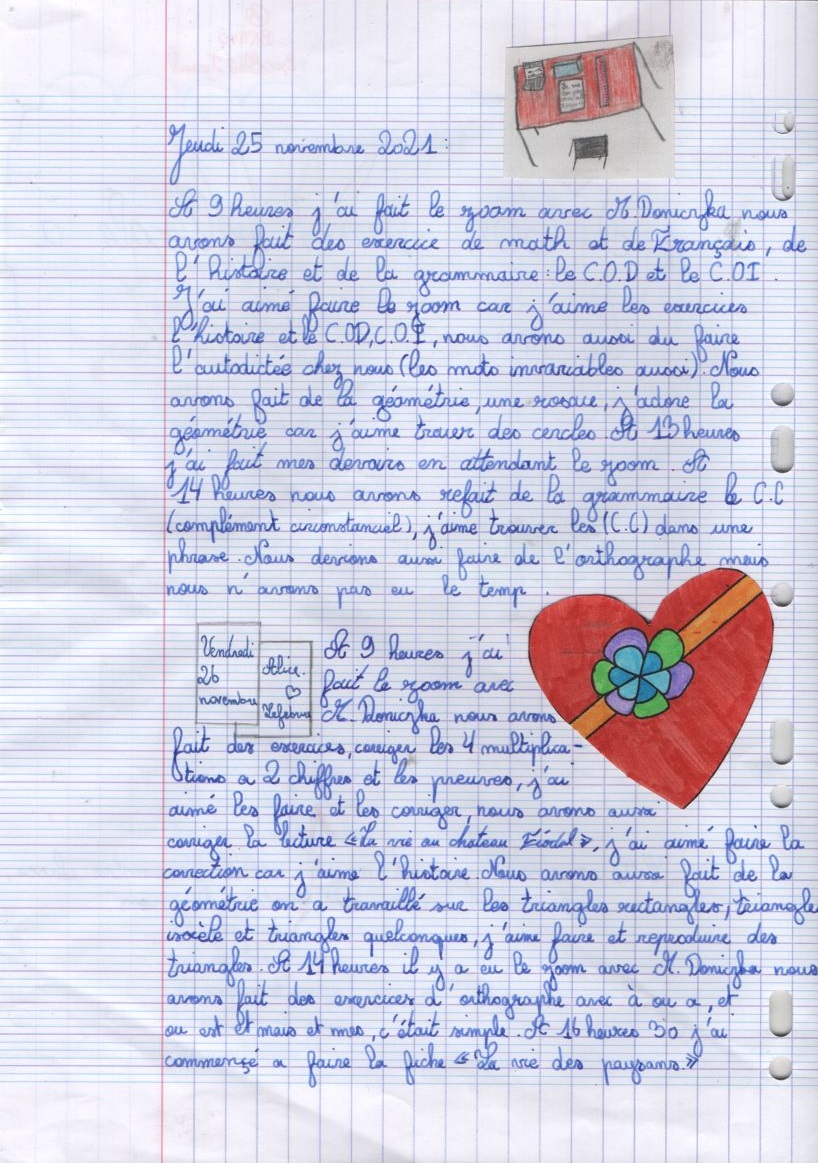 Jeudi 25 novembre 2021:
A 9 heures j'ai fait le zoom avec M. Doniczka nous
avons fait des exercice de math et de Français, de
l'histoire et de la grammaire: le C.O.D et le C.OI.
J'ai aimé faire le zoom car j'aime les exercices
l'histoire et le C.OD, C.O.I, nous avons aussi du faire
l'autodictée chez nous (les mots invariables aussi). Nous
avons fait de la géométrie, une rosace, j'adore la
géométrie car j'aime tracer des cercles. A 13 heures
j'ai fait mes devoirs en attendant le zoom. A
14 heures nous avons refait de la grammaire le C.C
(complément circonstanciel), j'aime trouver les (C.C) dans une
phrase. Nous devions aussi faire de l'orthographe mais
nous n'avons pas eu le temp.
Vendredi
26
novembre
Alice.
Lefebvre
A 9 heures j'ai
fait le zoom avec
M. Doniczka nous avons
fait des exercices, corriger les 4 multiplica-
tions a 2 chiffres et les preuves, j'ai
aimé les faire et les corriger, nous avons aussi
corriger la lecture «La vie au chateau Féodal», j'ai aimé faire la
correction car j'aime l'histoire. Nous avons aussi fait de la
géométrie on a travaillé sur les triangles rectangles, triangle
isocèle et triangles quelconques, j'aime faire et reproduire des
triangles. A 14 heures il y a eu le zoom avec M. Doniczka nous
avons fait des exercices d'orthographe avec à ou a, et
ou est et mais et mes, c'était simple. A 16 heures 30 j'ai
commençé a faire la fiche «La vie des paysans.»